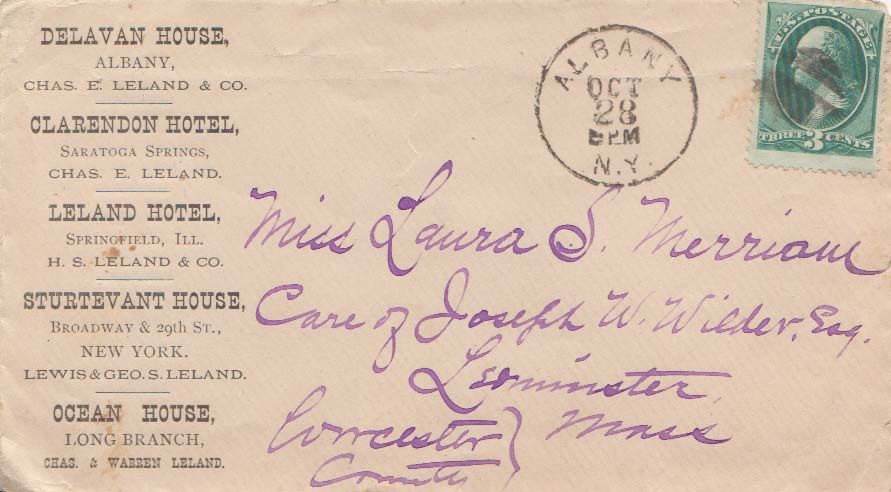 DELAVAN HOUSE,
ALBANY,
CHAS. E. LELAND & CO.
CLARENDON HOTEL,
SARATOGA SPRINGS,
CHAS. E. LELAND.
LELAND HOTEL,
SPRINGFIELD, ILL.
H. S. LELAND & CO.
STURTEVANT HOUSE,
BROADWAY & 29th ST.,
NEW YORK.
LEWIS & GEO. S. LELAND.
OCEAN HOUSE,
LONG BRANCH,
CHAS. & WARREN LELAND.
ALBANY
OCT
28
PM
N.Y.
U.S. POSTAGE
THREE 3 CENTS
Miss Laura S. Merriam
Care of Joseph W. Wilder, Esq.
Leominster,
Worcester } Mass
County